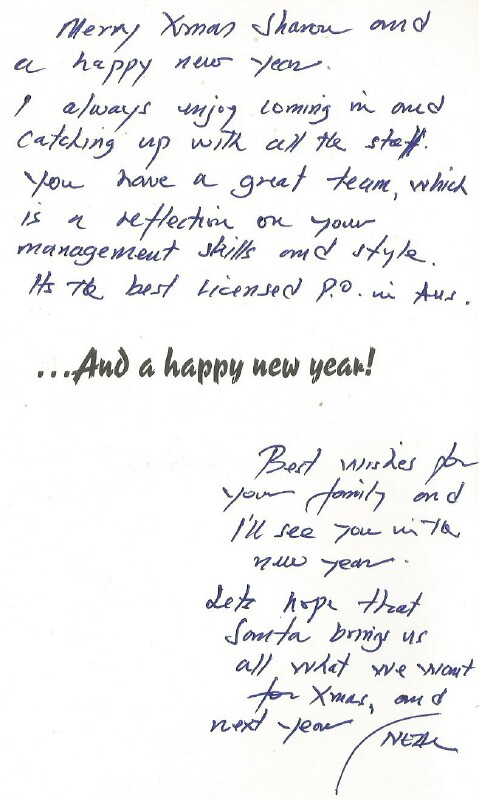 Merry Xmas Sharon and
a happy new year.
I always enjoy coming in and
catching up with all the staff.
You have a great team, which
is a reflection on your
management skills and style.
Its the best Licensed P.O. in Aus.
...And a happy new year!
Best wishes for
your family and
I'll see you in the
new year.
Lets hope that
Santa brings us
all what we want
for Xmas, and
next year